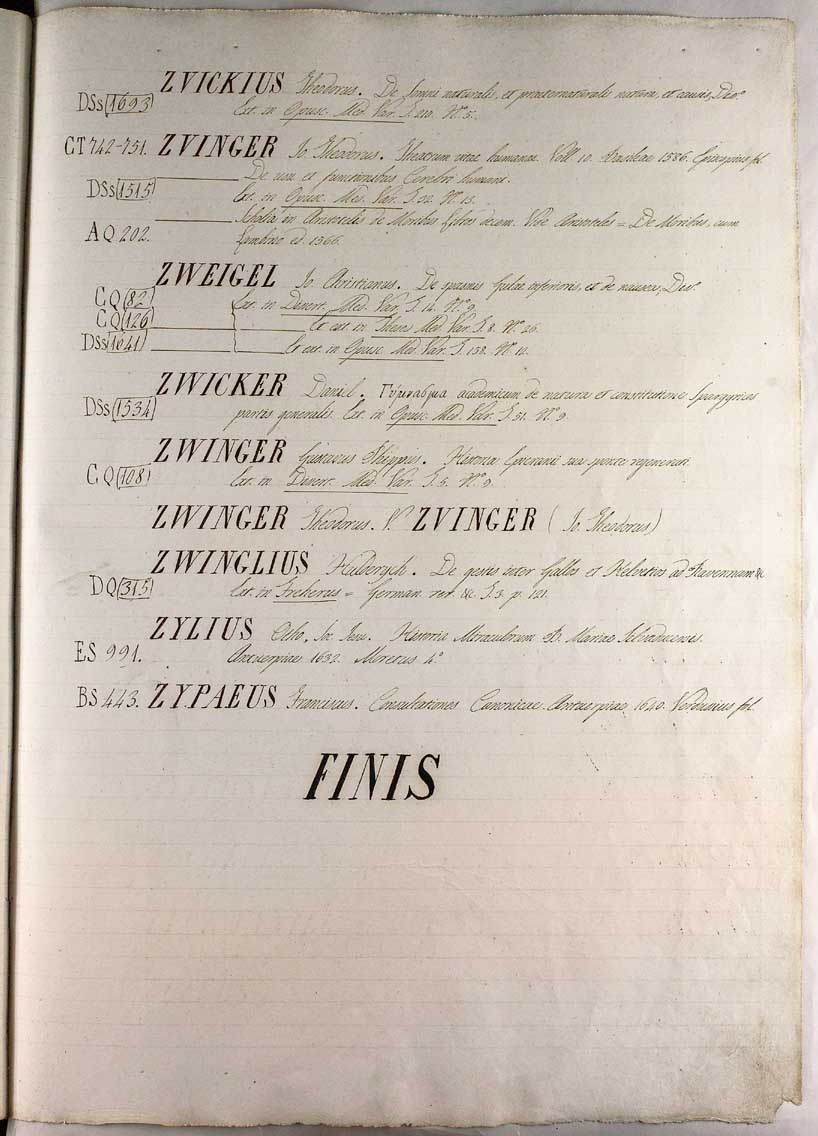 DSs 1693 ZVICKIUS Theodorus. De somni naturalis, et praeternaturalis natura, et causis, Diss.
Ext. in Opusc. Med. Var. T. 210. N.º 5.
CT 742-751. ZVINGER Jo. Theodorus. Theatrum vitae humanae. Voll. 10. Basileae 1586. Episcopius fol.
DSs 1515 De usu et functionibus Cerebri humani.
Ext. in Opusc. Med. Var. T. 22. N.º 13.
AQ 202. Scholia in Aristotelis de Moribus libros decem. Vide Aristoteles = De Moribus, cum
Lambino ed. 1566.
ZWEIGEL Jo. Christianus. De spasmis Gulae inferioris, et de nausea, Diss.
CQ 82 Ext. in Dissert. Med. Var. T. 14. N.º 9.
CQ 126 Et ext. in Theses Med. Var. T. 8. N.º 26.
DSs 1641 Et ext. in Opusc. Med. Var. T. 158. N.º 12.
ZWICKER Daniel. Γύμνασμα academicum de natura et constitutione Spargyricae
DSs 1534 partis generalis. Ext. in Opusc. Med. Var. T. 51. N.º 9.
ZWINGER Gustavus Philippus. Historia
CQ 108 Ext. in Dissert. Med. Var. T. 5. N.º 9.
ZWINGER Theodorus. V. ZVINGER (Jo. Theodorus)
ZWINGLIUS De gestis inter Gallos et Helvetios ad Ravennam &c.
DQ 315 Ext. in Freherus = German. rer. &c. T. 3. p. 121.
ZYLIUS Otho, Soc. Jesu. Historia Miraculorum B. Mariae Silvaducensis.
ES 991. Antverpiae 1632. Moretus 4.º
BS 443. ZYPAEUS Franciscus. Consultationes Canonicae. Antverpiae 1640. Verdussius fol.
FINIS